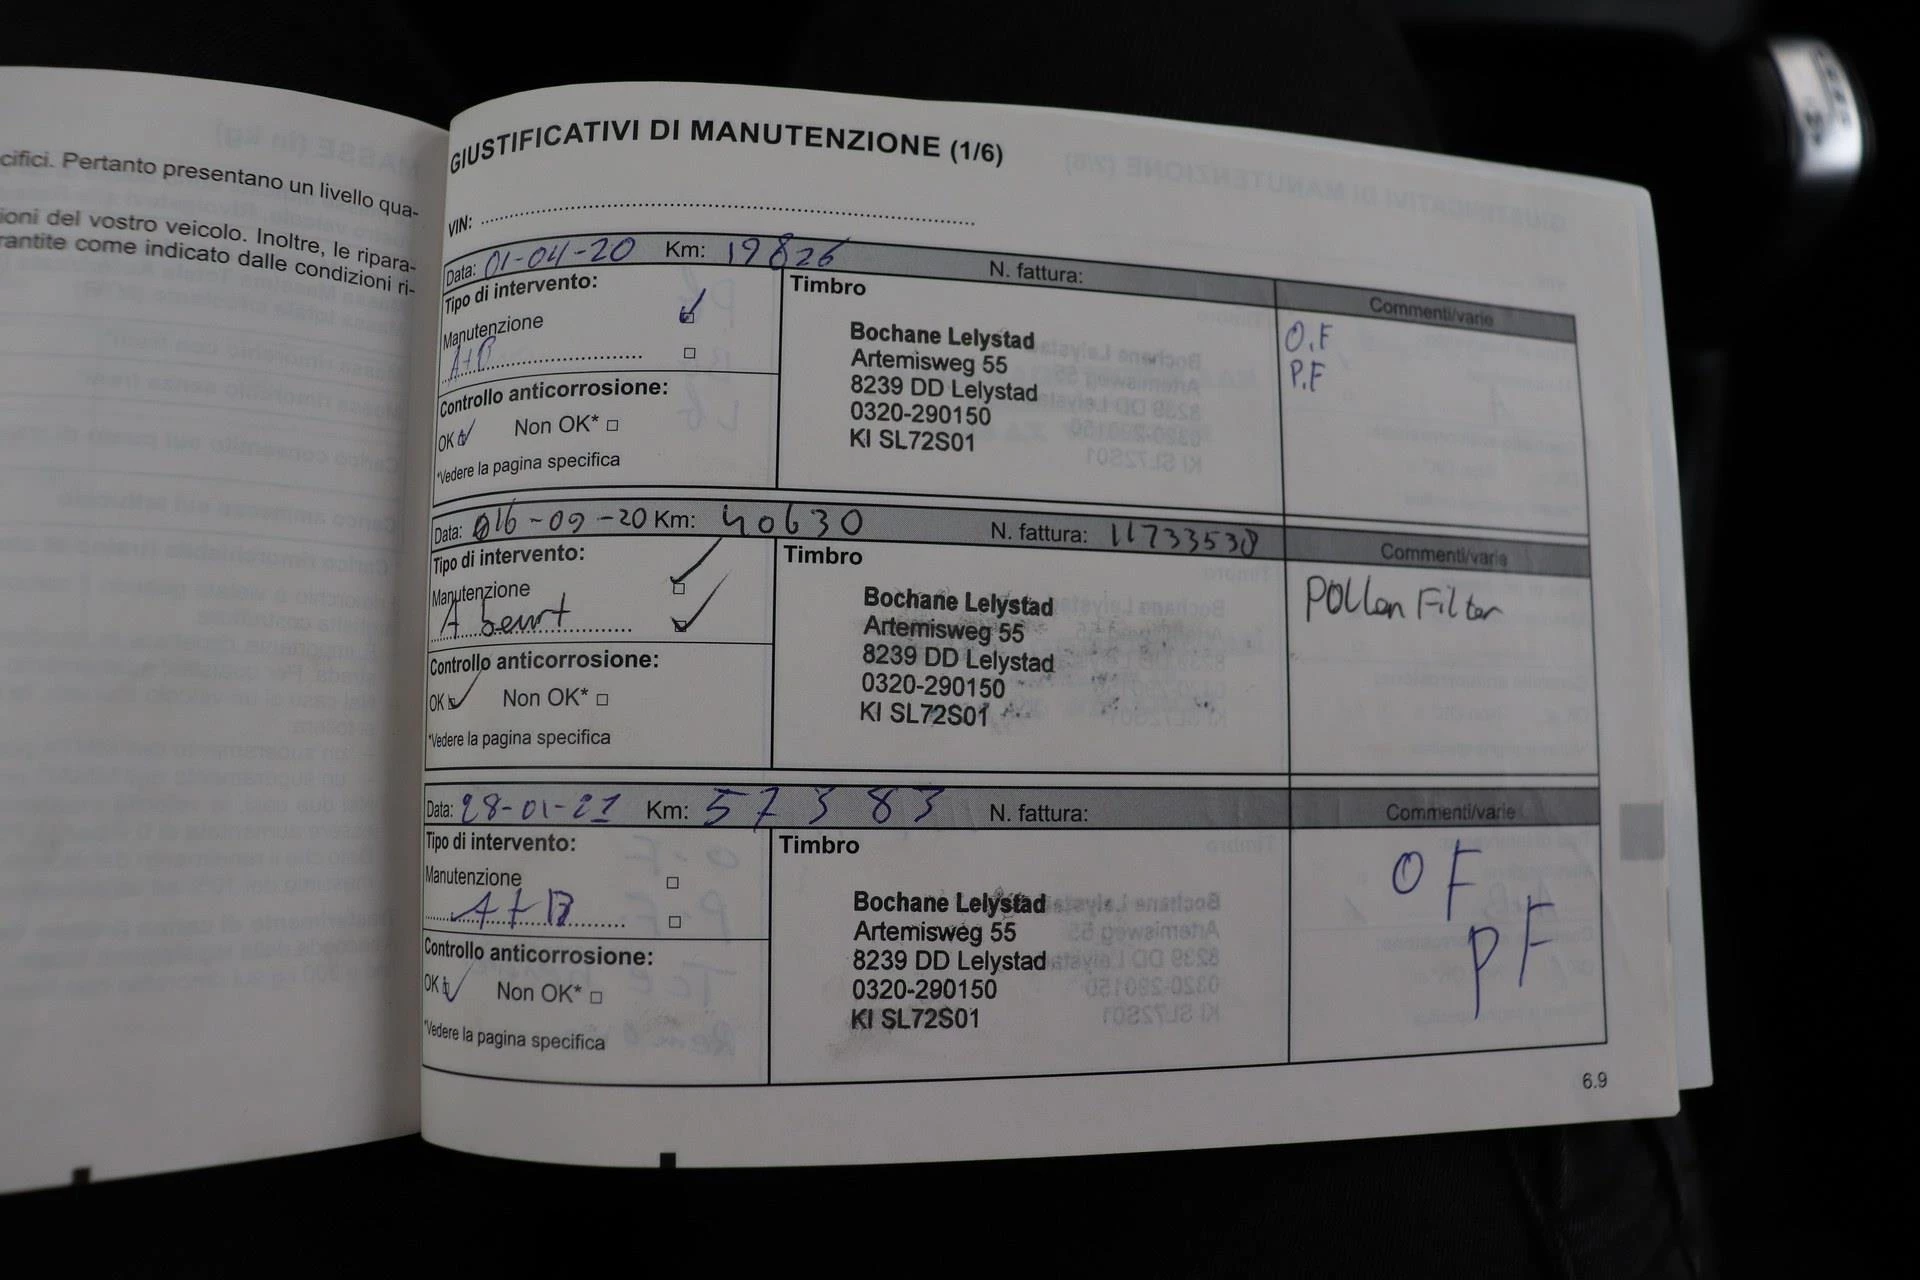 cifici. Pertanto presentano un livello qua-
ioni del vostro veicolo. Inoltre, le ripara-
rantite come indicato dalle condizioni ri-
GIUSTIFICATIVI DI MANUTENZIONE (1/6)
VIN:
Data: 01-04-20 Km: 19826 N. fattura:
Tipo di intervento:
Manutenzione
A+B
Controllo anticorrosione:
OK Non OK*
*Vedere la pagina specifica
Timbro
Bochane Lelystad
Artemisweg 55
8239 DD Lelystad
0320-290150
KI SL72S01
Commenti/varie
O.F
P.F
Data: 16-09-20 Km: 40630 N. fattura: 11733538
Tipo di intervento:
Manutenzione
A beurt
Controllo anticorrosione:
OK Non OK*
*Vedere la pagina specifica
Timbro
Bochane Lelystad
Artemisweg 55
8239 DD Lelystad
0320-290150
KI SL72S01
Commenti/varie
Pollen Filter
Data: 28-01-21 Km: 57383 N. fattura:
Tipo di intervento:
Manutenzione
A+B
Controllo anticorrosione:
OK Non OK*
*Vedere la pagina specifica
Timbro
Bochane Lelystad
Artemisweg 55
8239 DD Lelystad
0320-290150
KI SL72S01
Commenti/varie
OF
PF
6.9